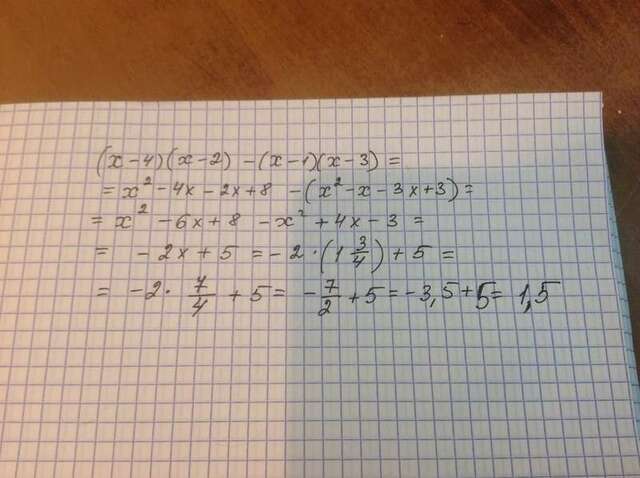 (x-4)(x-2) -(x-1)(x-3) =
= x² -4x -2x+8 -(x²-x-3x+3)=
= x² -6x+8 -x²+4x-3 =
= -2x+5 =-2·(1 3/4)+5 =
= -2· 7/4 +5= -7/2+5=-3,5+5= 1,5